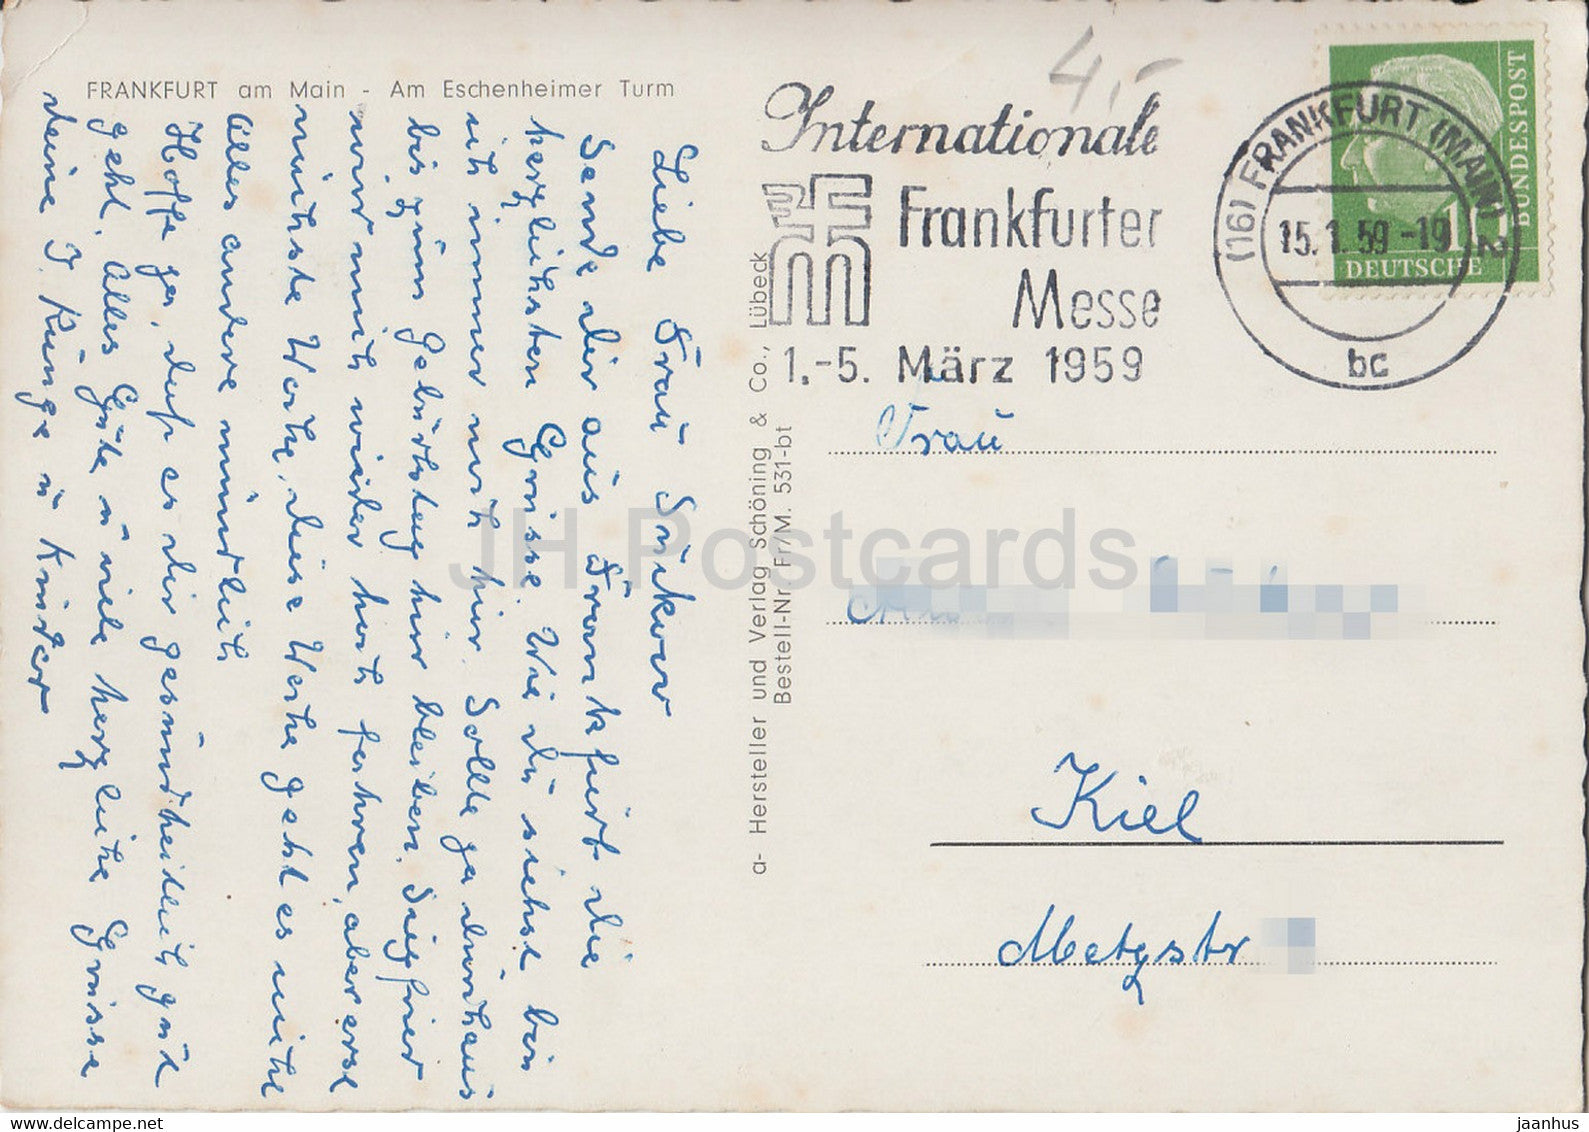 FRANKFURT am Main - Am Eschenheimer Turm
Liebe Frau
Sende dir aus Frankfurt die
herzlichsten Grüsse. Wie du siehst bin
ich immer noch hier. Solle ja durchaus
bis zum Geburtstag hier bleiben. Siegfried
wird mich wieder hoch fahren, aber erst
nächste Woche, diese Woche geht es nicht
Alles andere mündlich
Hoffe ja, daß es dir gesundheitlich gut
geht. Alles Gute u viele herzliche Grüsse
deine J Runge u Kinder
a- Hersteller und Verlag Schöning & Co., Lübeck
Bestell-Nr. Fr/M. 531-bt
4,-
Internationale
Frankfurter
Messe
1.-5. März 1959
(16) FRANKFURT (MAIN) 2
15.1.59-19
bc
DEUTSCHE
BUNDESPOST
Frau
Kiel
Metzstr
JH Postcards
www.delcampe.net
jaanhus